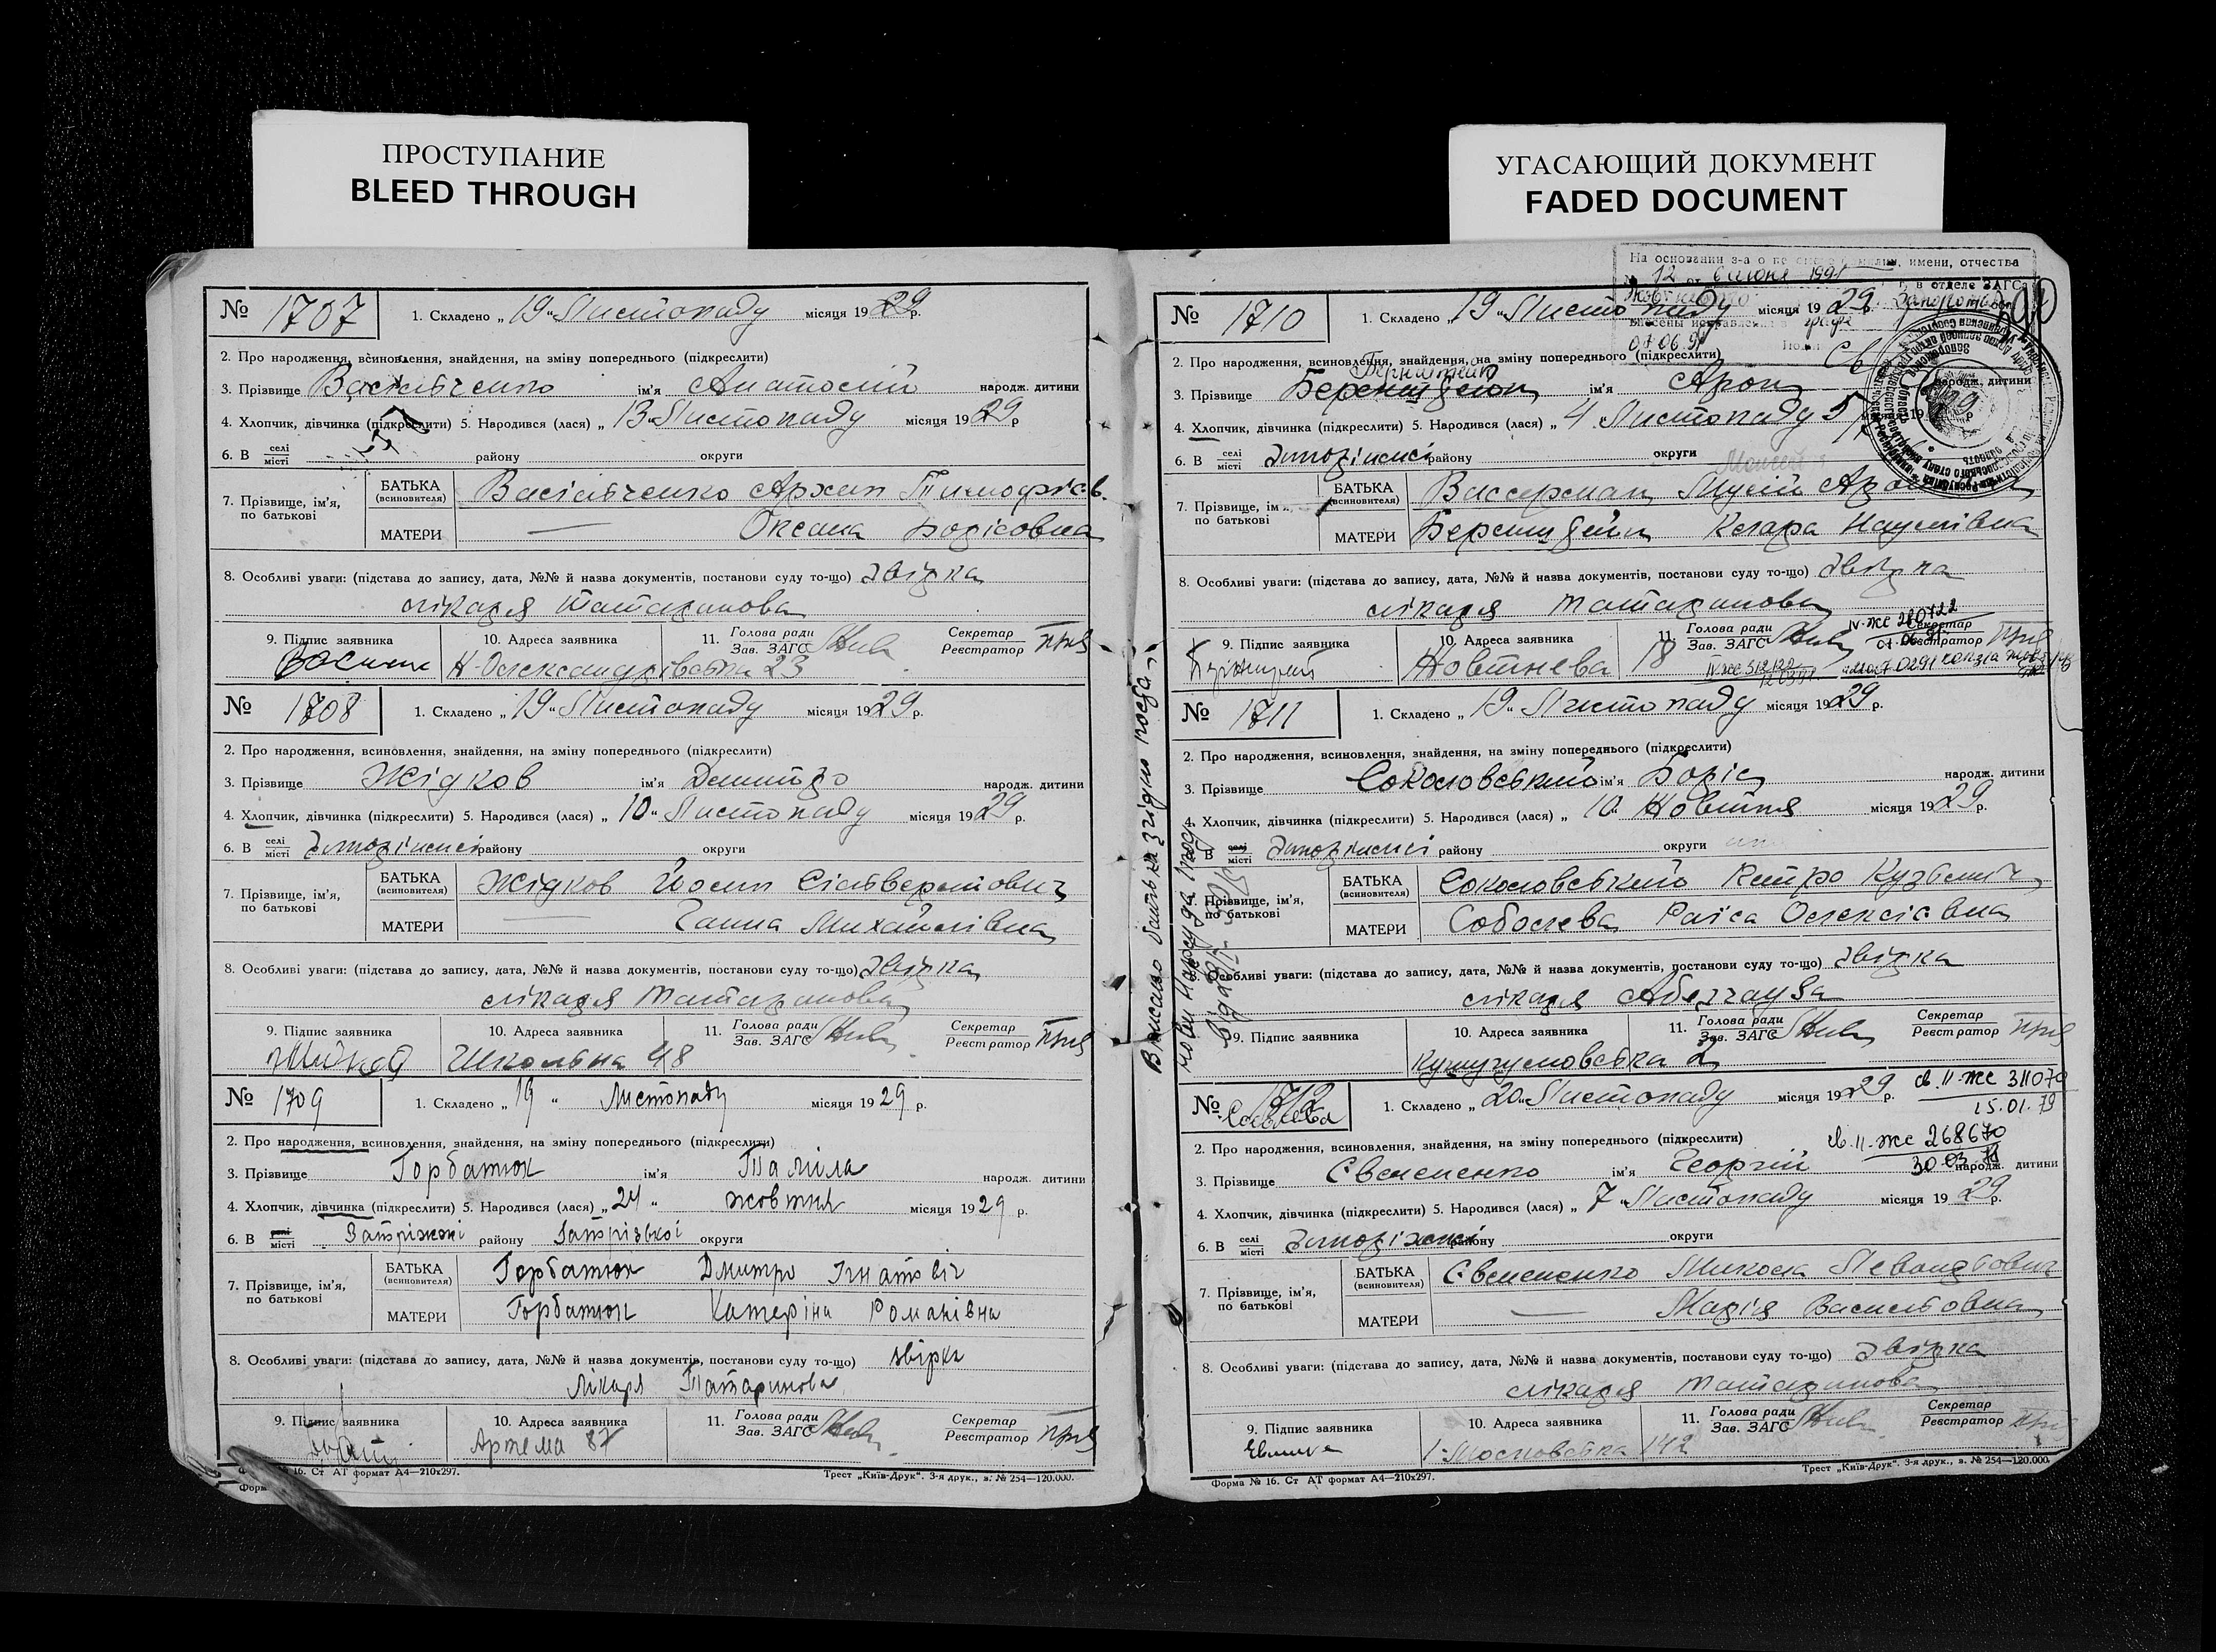 ПРОСТУПАНИЕ
BLEED THROUGH
УГАСАЮЩИЙ ДОКУМЕНТ
FADED DOCUMENT
№ 1707 1. Складено „ 19 “ Листопаду місяця 1929 р.
2. Про народження, всиновлення, знайдення, на зміну попереднього (підкреслити)
3. Прізвище ім'я Анатолій народж. дитини
4. Хлопчик, дівчинка (підкреслити) 5. Народився (лася) „ 13 “ Листопаду місяця 1929 р
6. В селі місті району округи
7. Прізвище, ім'я, по батькові
БАТЬКА (всиновителя) Архип
МАТЕРИ — Оксана Борісовна
8. Особливі уваги: (підстава до запису, дата, №№ й назва документів, постанови суду то-що) Звірка
лікаря Татаринова
9. Підпис заявника 10. Адреса заявника 11. Голова ради Зав. ЗАГС Секретар Реєстратор
Н-Олександрівська 23
№ 1708 1. Складено „ 19 “ Листопаду місяця 1929 р.
2. Про народження, всиновлення, знайдення, на зміну попереднього (підкреслити)
3. Прізвище Жідков ім'я Дмитро народж. дитини
4. Хлопчик, дівчинка (підкреслити) 5. Народився (лася) „ 10 “ Листопаду місяця 1929 р.
6. В селі місті Запоріжжі району округи
7. Прізвище, ім'я, по батькові
БАТЬКА (всиновителя) Жідков Йосип Сільверстович
МАТЕРИ Ганна Михайлівна
8. Особливі уваги: (підстава до запису, дата, №№ й назва документів, постанови суду то-що) Звірка
лікаря Татаринова
9. Підпис заявника 10. Адреса заявника 11. Голова ради Зав. ЗАГС Секретар Реєстратор
Шкільна 48
№ 1709 1. Складено „ 19 “ Листопаду місяця 1929 р.
2. Про народження, всиновлення, знайдення, на зміну попереднього (підкреслити)
3. Прізвище Горбатюк ім'я Таміла народж. дитини
4. Хлопчик, дівчинка (підкреслити) 5. Народився (лася) „ 24 “ жовтня місяця 1929 р.
6. В селі місті Запоріжжі району Запорізької округи
7. Прізвище, ім'я, по батькові
БАТЬКА (всиновителя) Горбатюк Дмитро Ігнатовіч
МАТЕРИ Горбатюк Катеріна Романівна
8. Особливі уваги: (підстава до запису, дата, №№ й назва документів, постанови суду то-що) звірка
лікаря Татаринова
9. Підпис заявника 10. Адреса заявника 11. Голова ради Зав. ЗАГС Секретар Реєстратор
Артема 87
№ 16. Ст АТ формат А4—210х297. Трест „Київ-Друк“. 3-я друк., з. № 254—120.000.
Форм
На основании з-а о фамилии, имени, отчества
№ 12 от 6 июня 1991
в отделе ЗАГС
внесены исправления в графе
№ 1710 1. Складено „ 19 “ Листопаду місяця 1929
2. Про народження, всиновлення, знайдення, на зміну попереднього (підкреслити)
3. Прізвище Беренштейн ім'я Арон народж. дитини
4. Хлопчик, дівчинка (підкреслити) 5. Народився (лася) „ 4 Листопаду
6. В селі місті Запоріжжі району округи
7. Прізвище, ім'я, по батькові
БАТЬКА (всиновителя) Вассерман Мусій
МАТЕРИ Беренштейн Клара Наумівна
8. Особливі уваги: (підстава до запису, дата, №№ й назва документів, постанови суду то-що) Звірка
лікаря Татаринова
9. Підпис заявника 10. Адреса заявника 11. Голова ради Зав. ЗАГС Секретар Реєстратор
Жовтнева 18
№ 1711 1. Складено „ 19 “ Листопаду місяця 1929 р.
2. Про народження, всиновлення, знайдення, на зміну попереднього (підкреслити)
3. Прізвище Соколовський ім'я Боріс народж. дитини
4. Хлопчик, дівчинка (підкреслити) 5. Народився (лася) „ 10 “ Жовтня місяця 1929 р.
6. В селі місті Запоріжжі району округи
7. Прізвище, ім'я, по батькові
БАТЬКА (всиновителя) Соколовський Петро Кузьмич
МАТЕРИ Соболева Раіса Олексієвна
8. Особливі уваги: (підстава до запису, дата, №№ й назва документів, постанови суду то-що) Звірка
лікаря
9. Підпис заявника 10. Адреса заявника 11. Голова ради Зав. ЗАГС Секретар Реєстратор
Кушугумовська 2
№ 1712 1. Складено „ 20 “ Листопаду місяця 1929 р. св. II-ЖС 311070
15.01.79
2. Про народження, всиновлення, знайдення, на зміну попереднього (підкреслити) св. II-ЖС 268670
3. Прізвище Євмененко ім'я Георгій народж. дитини
4. Хлопчик, дівчинка (підкреслити) 5. Народився (лася) „ 7 “ Листопаду місяця 1929 р.
6. В селі місті Запоріжжі району округи
7. Прізвище, ім'я, по батькові
БАТЬКА (всиновителя) Євмененко Микола
МАТЕРИ — Марія Васильовна
8. Особливі уваги: (підстава до запису, дата, №№ й назва документів, постанови суду то-що) Звірка
лікаря Татаринова
9. Підпис заявника 10. Адреса заявника 11. Голова ради Зав. ЗАГС Секретар Реєстратор
Московська 142
Форма № 16. Ст АТ формат А4—210х297. Трест „Київ-Друк“. 3-я друк., з. № 254—120.000.